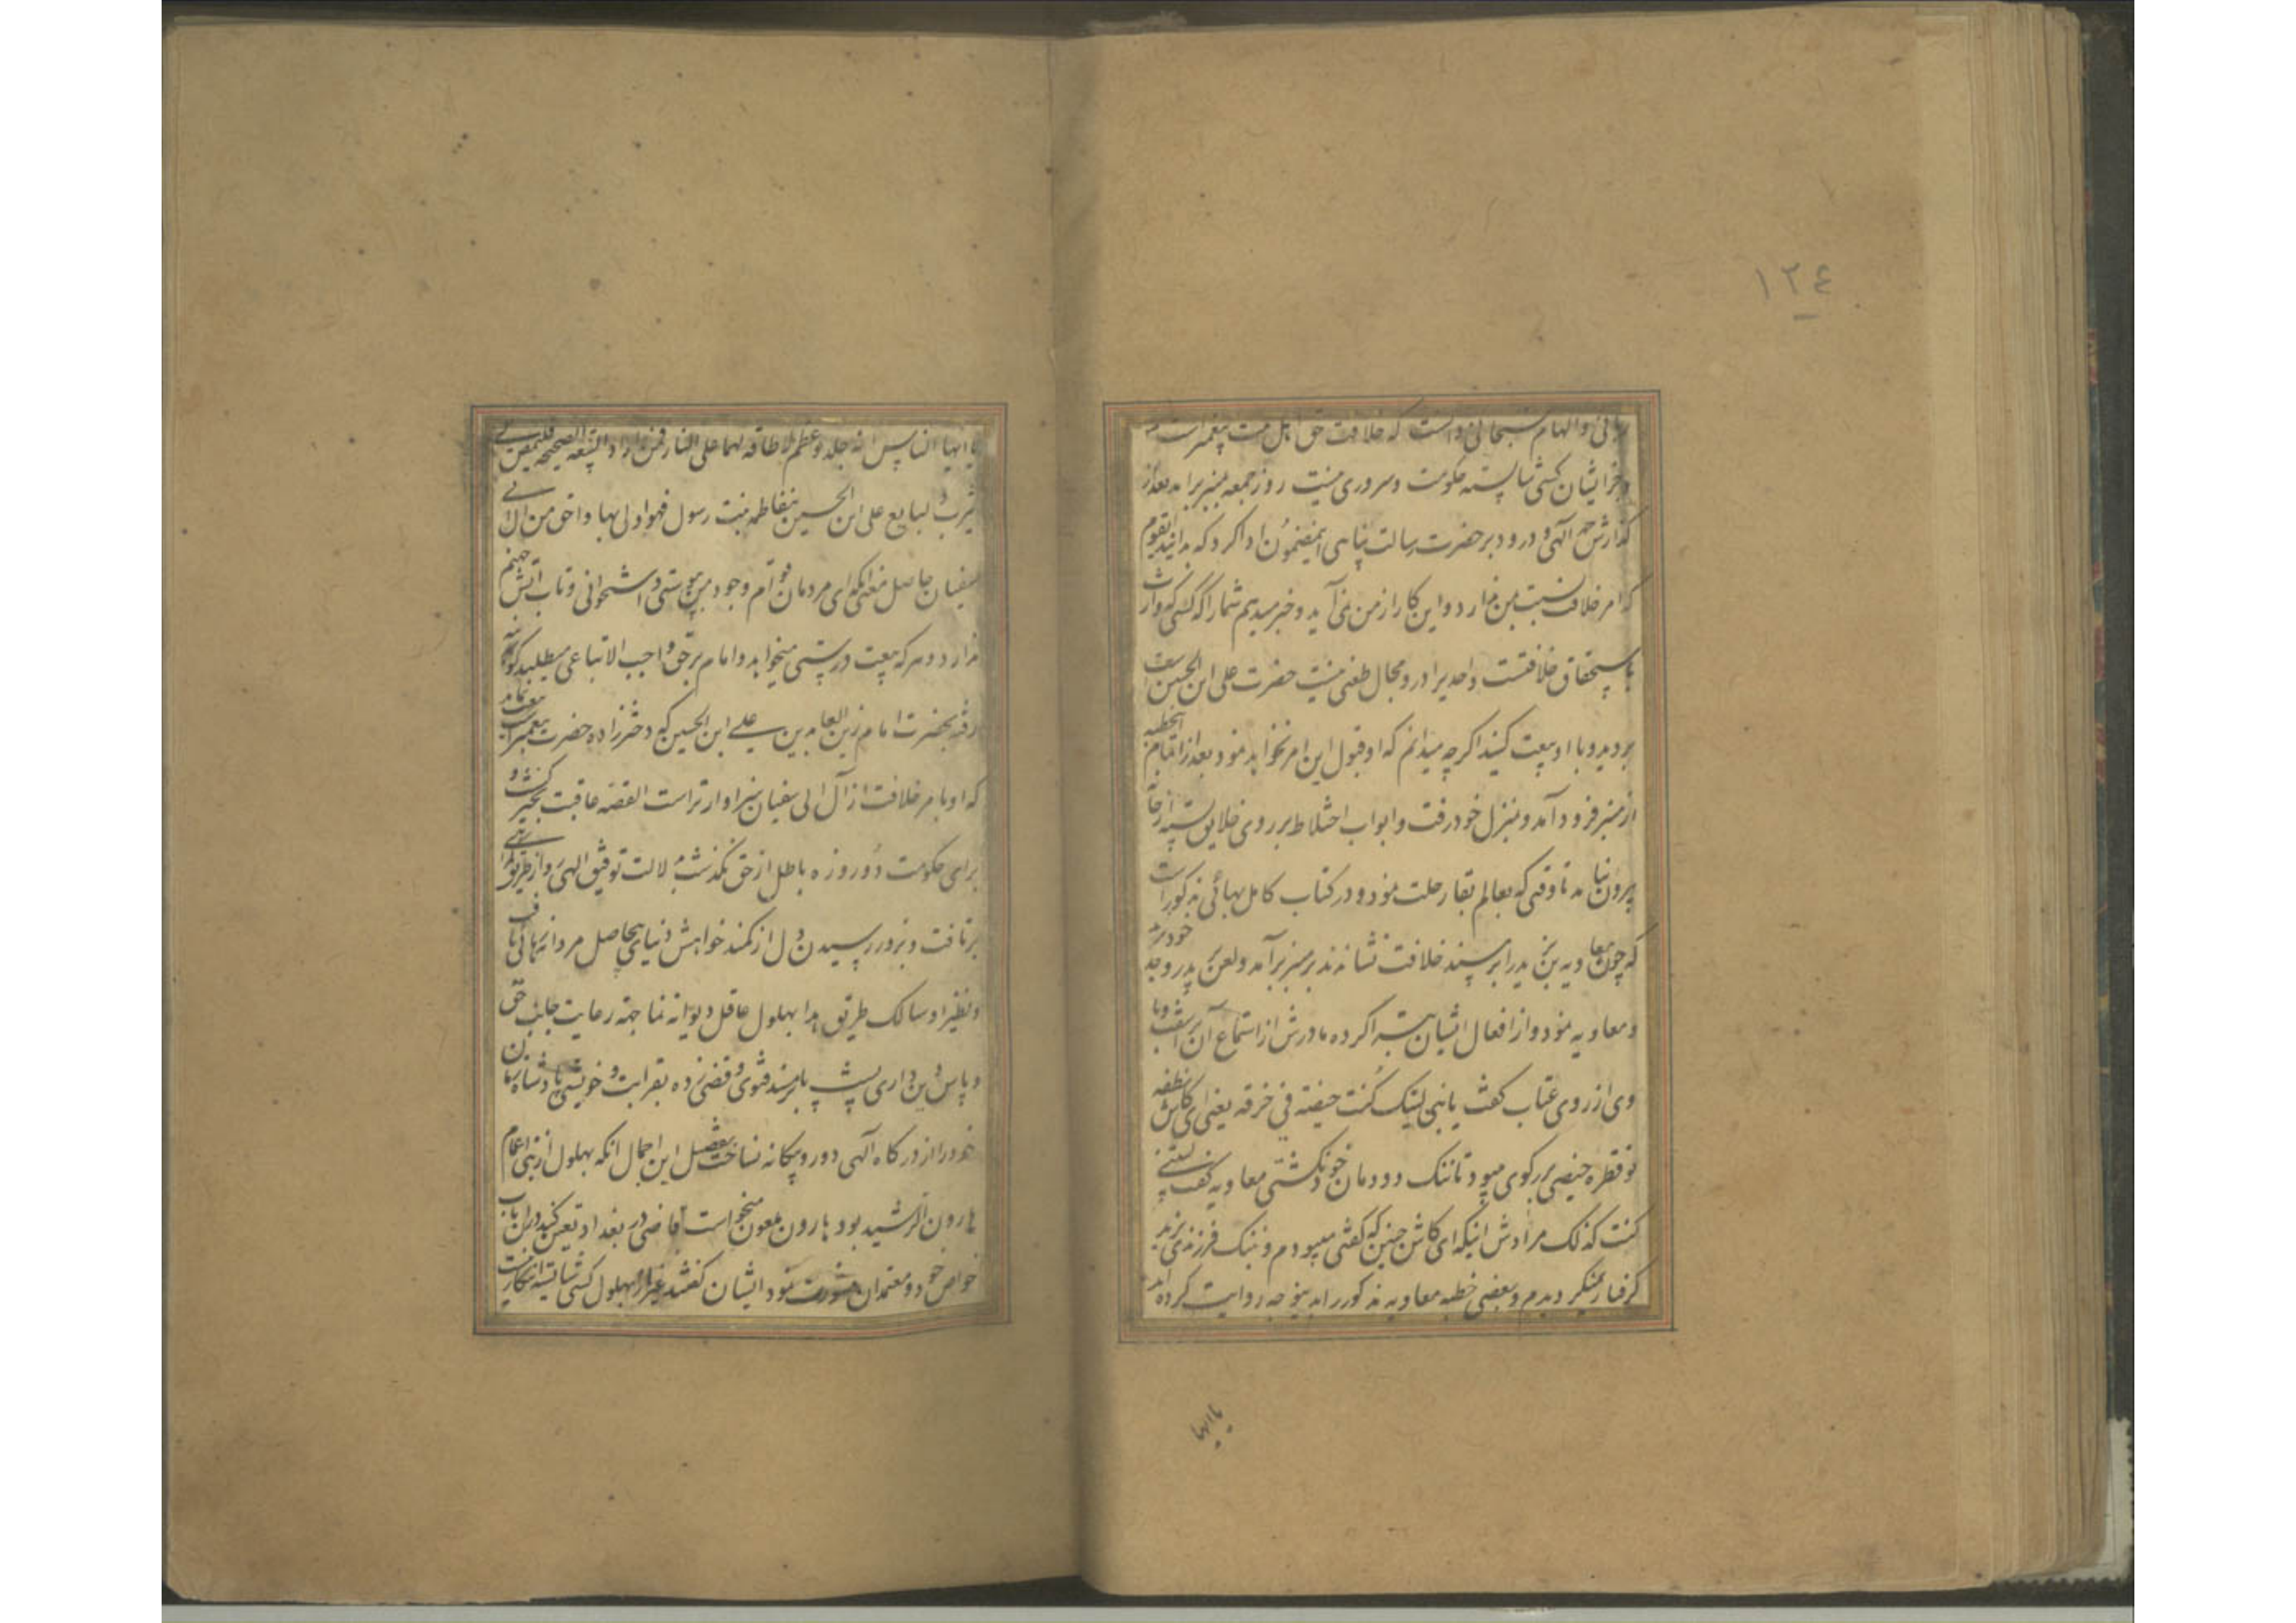 ١٢٤
ربانی و الهام سبحانی دانست که خلافت حق اهل بیت پیغمبر است و
جز ایشان کسی شایسته حکومت و سروری نیست روز جمعه بمنبر برآمد بعد از
گذارش حمد آلهی و درود بر حضرت رسالت پناهی اینمضمون ادا کرد که بدانید ایقوم
که امر خلافت نسبت بمن ندارد و این کار از من نمی آید و خبر میدهم شما را که کسی که وارث
باستحقاق خلافتست و احدیرا در و مجال طعنی نیست حضرت علی ابن الحسین است
بروید و با او بیعت کنید اگر چه میدانم که او قبول این امر نخواهد نمود بعد از اتمام الخطبه
از منبر فرود آمد و بمنزل خود رفت و ابواب اختلاط بر روی خلایق بسته از خانه
بیرون نیامد تا وقتی که بعالم بقا رحلت نمود و در کتاب کامل بهائی مذکور است
که چون معاویه بن یزید را بر مسند خلافت نشاندند بر منبر برآمد و لعن پدر و جد خود یزید
و معاویه نمود و از افعال ایشان تبرا کرده مادرش از استماع آن بر آشفت و با
وی از روی عتاب گفت یا بنی لیتک کنت حیضته فی خرقه یعنی ای کاش نطفه
تو قطره حیضی بر رکوی میبود تا ننک دودمان خود نکشتی معاویه گفت لیتنی
کنت کذلک مرادش اینکه ای کاش چنین که گفتی میبودم و بننک فرزندی یزید
گرفتار نمیگردیدم و بعضی خطبه معاویه مذکور را بدینوجه روایت کرده اند
یا ایها
یا ایها الناس انه جلد و عظم لا طاقه لهما علی النار فمن اراد البیعه الصحیحه فلیمض الی
یثرب لیبایع علی ابن الحسین بن فاطمه بنت رسول فهو اولی بها و احق من آل ابی
سفیان حاصل معنی آنکه ای مردمان توام وجود من پوستی و استخوانی و تاب آتش جهنم
ندارد و هر که بیعت درستی میخواهد و امام بر حق واجب الاتباعی میطلبد کو بمدینه
رفته بحضرت امام زین العابدین علی ابن الحسین که دخترزاده حضرت پیغمبر است بیعت نماید
که او بامر خلافت از آل ابی سفیان سزاوارتر است القصه عاقبت بخیر گشت و
برای حکومت دو روزه باطل از حق نگذشت بدلالت توفیق الهی رو از طریق گمراهی
برتافت و بزور رسیدن دل از کمند خواهش دنیای بیحاصل مردانه رهائی یافت
و نظیر او سالک طریق هدا بهلول عاقل دیوانه نما جهة رعایت جانب حق
و پاس دین داری پشت پا بر مسند فتوی و قضی زده بقرابت و خویشی پادشاه زمان
خود را از درگاه آلهی دور و بیگانه نساخت تفصیل این اجمال آنکه بهلول از بنی اعمام
هارون الرشید بود و هارون ملعون میخواست قاضی در بغداد تعیین کند در آن باب
خواص خود و معتمدان مشورت نمود ایشان گفتند غیر از بهلول کسی شایسته اینکار نیست